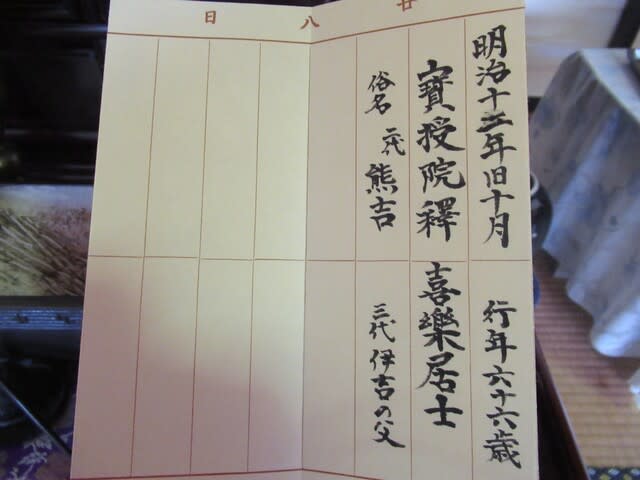 廿八日
明治十三年旧十月
行年六十六歳
寳授院釋
喜樂居士
俗名 二代 熊吉
三代 伊吉の父